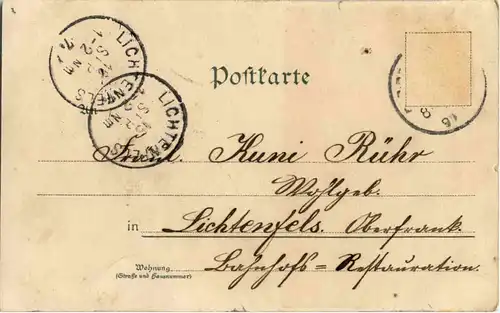 LICHTENFELS
LICHTENFELS
Postkarte
Kuni Rühr
Wohlgeb.
in Lichtenfels. Oberfrank.
Wohnung
(Straße und Hausnummer)
Bahnhofs = Restauration.